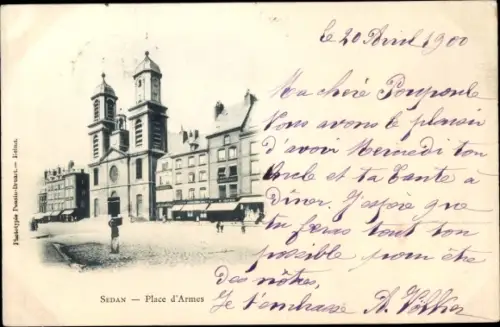 le 20 Avril 1900
Ma chère Poupoule
Vous avons le plaisir
d'avoir Mercredi ton
Oncle et ta Tante à
dîner. J'espère que
tu feras tout ton
possible pour être
des nôtres,
Je t'embrasse A.
SEDAN — Place d'Armes
Phototypie — Reims.